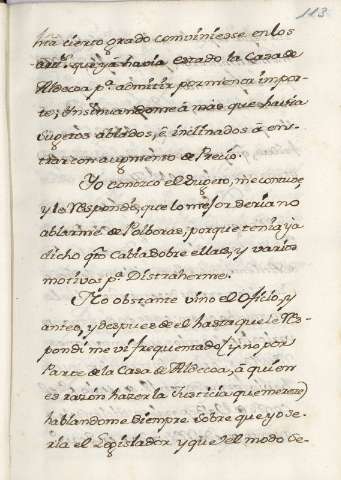 113.
hta cierto grado conviniesse en los
artt.s que yá havia estado la Casa de
Aldecoa p.a admitir por menor impor-
te; insinuandome á mas que havia
Sugetos ablados, é inclinados á ens-
trar con augmento de Precio.
Yo conozco el Sugeto, me contuve,
y le Respondi, que lo mejor seria no
ablarme de Polboras, porque tenia ya
dicho q.to cabia sobre ellas, y varios
motivos p.a Distraherme.
No obstante vino el Oficio, y
antes, y despues de el hasta que le Res-
pondi me vi frequentado (y no por
Parte de la Casa de Aldecoa, á quien
es razón hazer la Justicia que merece)
hablandome siempre sobre que yo se-
ria el Legislador y que del modo de-